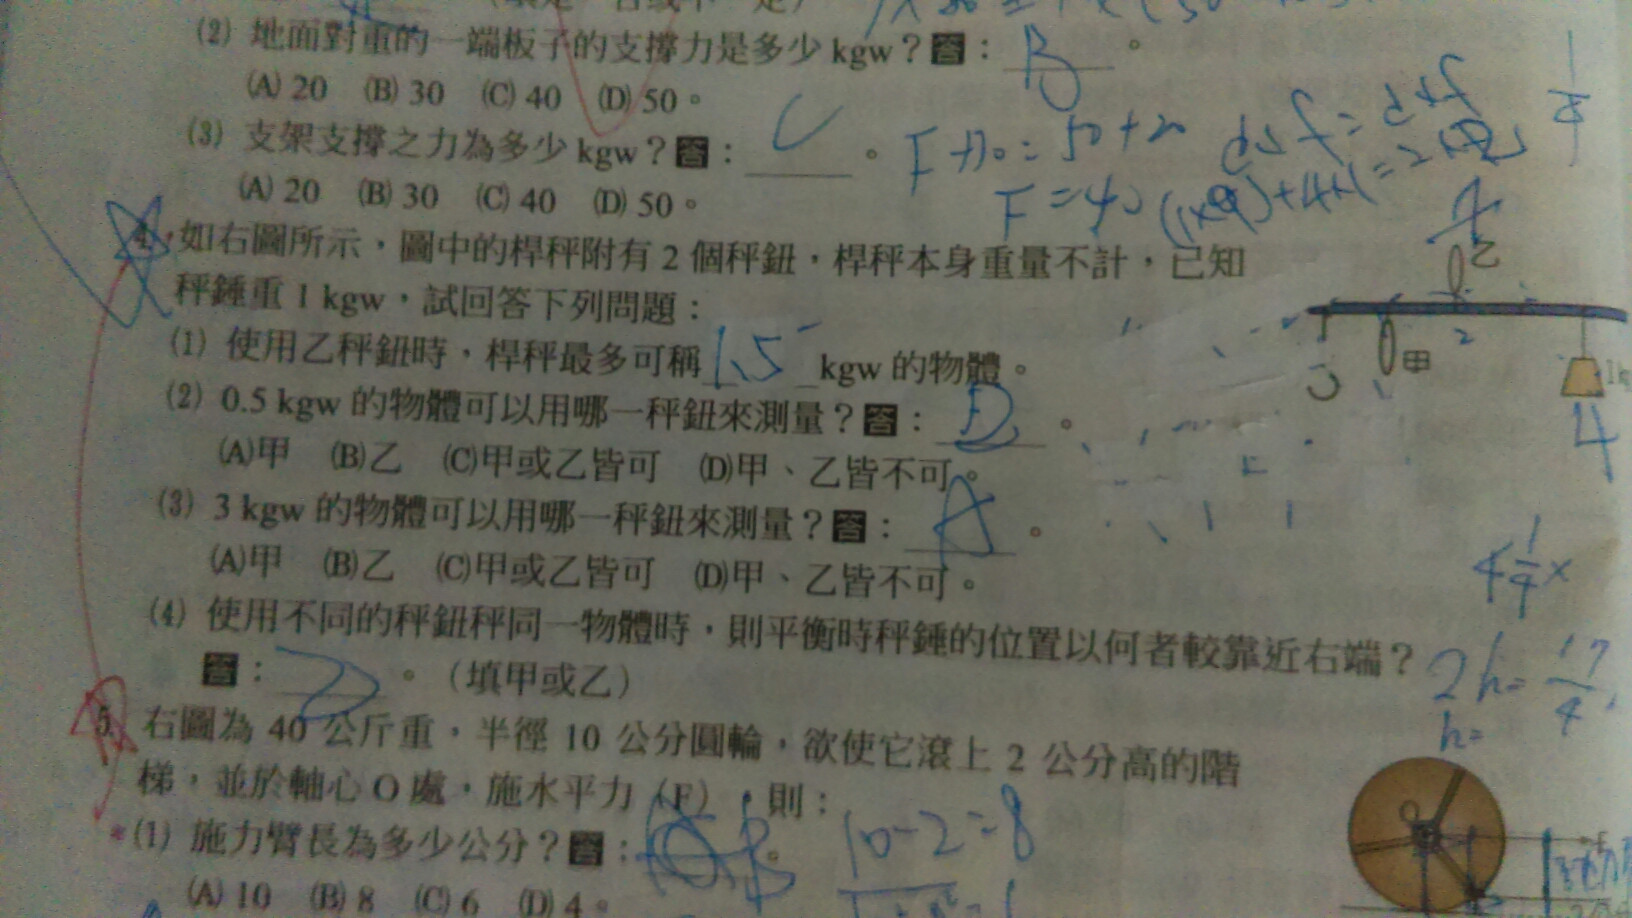 (2) 地面對重的一端板子的支撐力是多少 kgw？答：B。
(A) 20 (B) 30 (C) 40 (D) 50。
(3) 支架支撐之力為多少 kgw？答：C。
F+30=50+20
F=40
(A) 20 (B) 30 (C) 40 (D) 50。
4. 如右圖所示，圖中的桿秤附有 2 個秤鈕，桿秤本身重量不計，已知
秤錘重 1 kgw，試回答下列問題：
乙
甲
2
4
(1) 使用乙秤鈕時，桿秤最多可稱 1.5 kgw 的物體。
(2) 0.5 kgw 的物體可以用哪一秤鈕來測量？答：。
(A)甲 (B)乙 (C)甲或乙皆可 (D)甲、乙皆不可。
(3) 3 kgw 的物體可以用哪一秤鈕來測量？答：A。
(A)甲 (B)乙 (C)甲或乙皆可 (D)甲、乙皆不可。
(4) 使用不同的秤鈕秤同一物體時，則平衡時秤錘的位置以何者較靠近右端？
答：乙。（填甲或乙）
5. 右圖為 40 公斤重，半徑 10 公分圓輪，欲使它滾上 2 公分高的階
梯，並於軸心 O 處，施水平力（F），則：
*(1) 施力臂長為多少公分？答：B。
10-2=8
O
(A) 10 (B) 8 (C) 6 (D) 4。